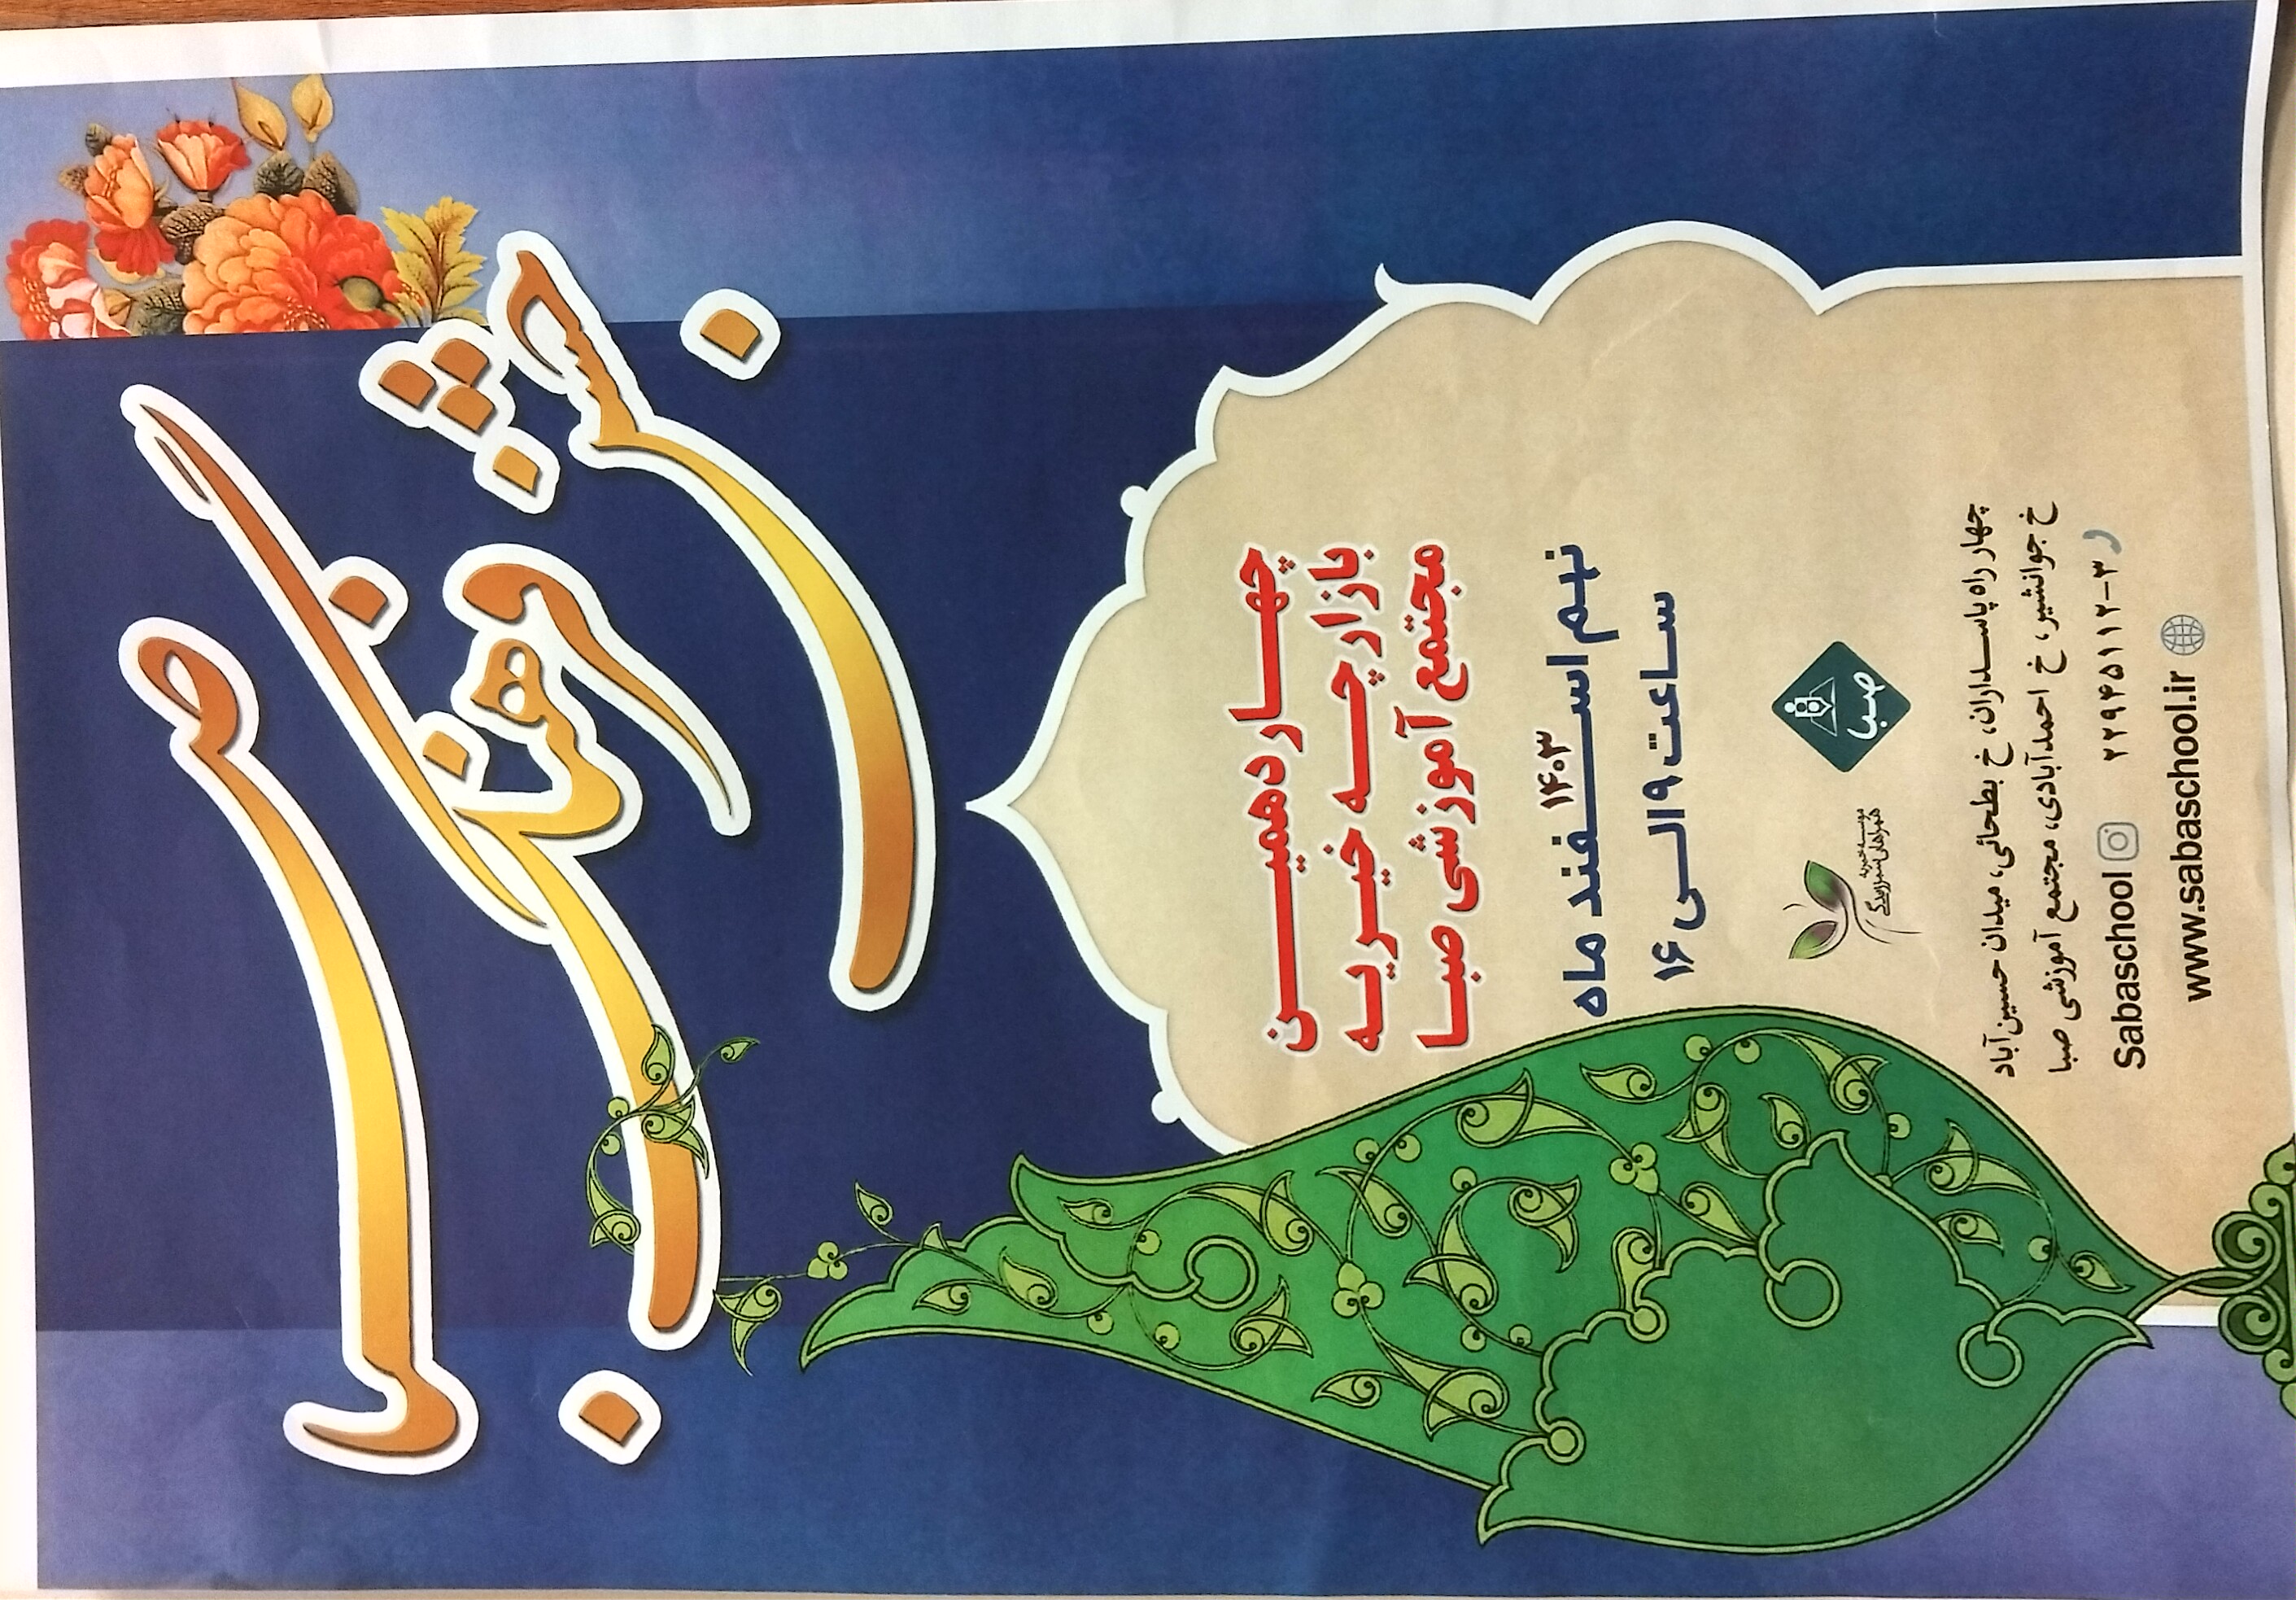 جشن فرهنگی صبا
چهاردهمین
بازارچه خیریه
مجتمع آموزشی صبا
نهم اسفند ماه ۱۴۰۳
ساعت ۹ الی ۱۶
صبا
موسسه خیریه
چهار راه پاسداران، خ بطحائی، میدان حسین‌آباد
خ جوانشیر، خ احمدآبادی، مجتمع آموزشی صبا
۲۲۹۴۵۱۱۲-۳ Sabaschool
www.sabaschool.ir